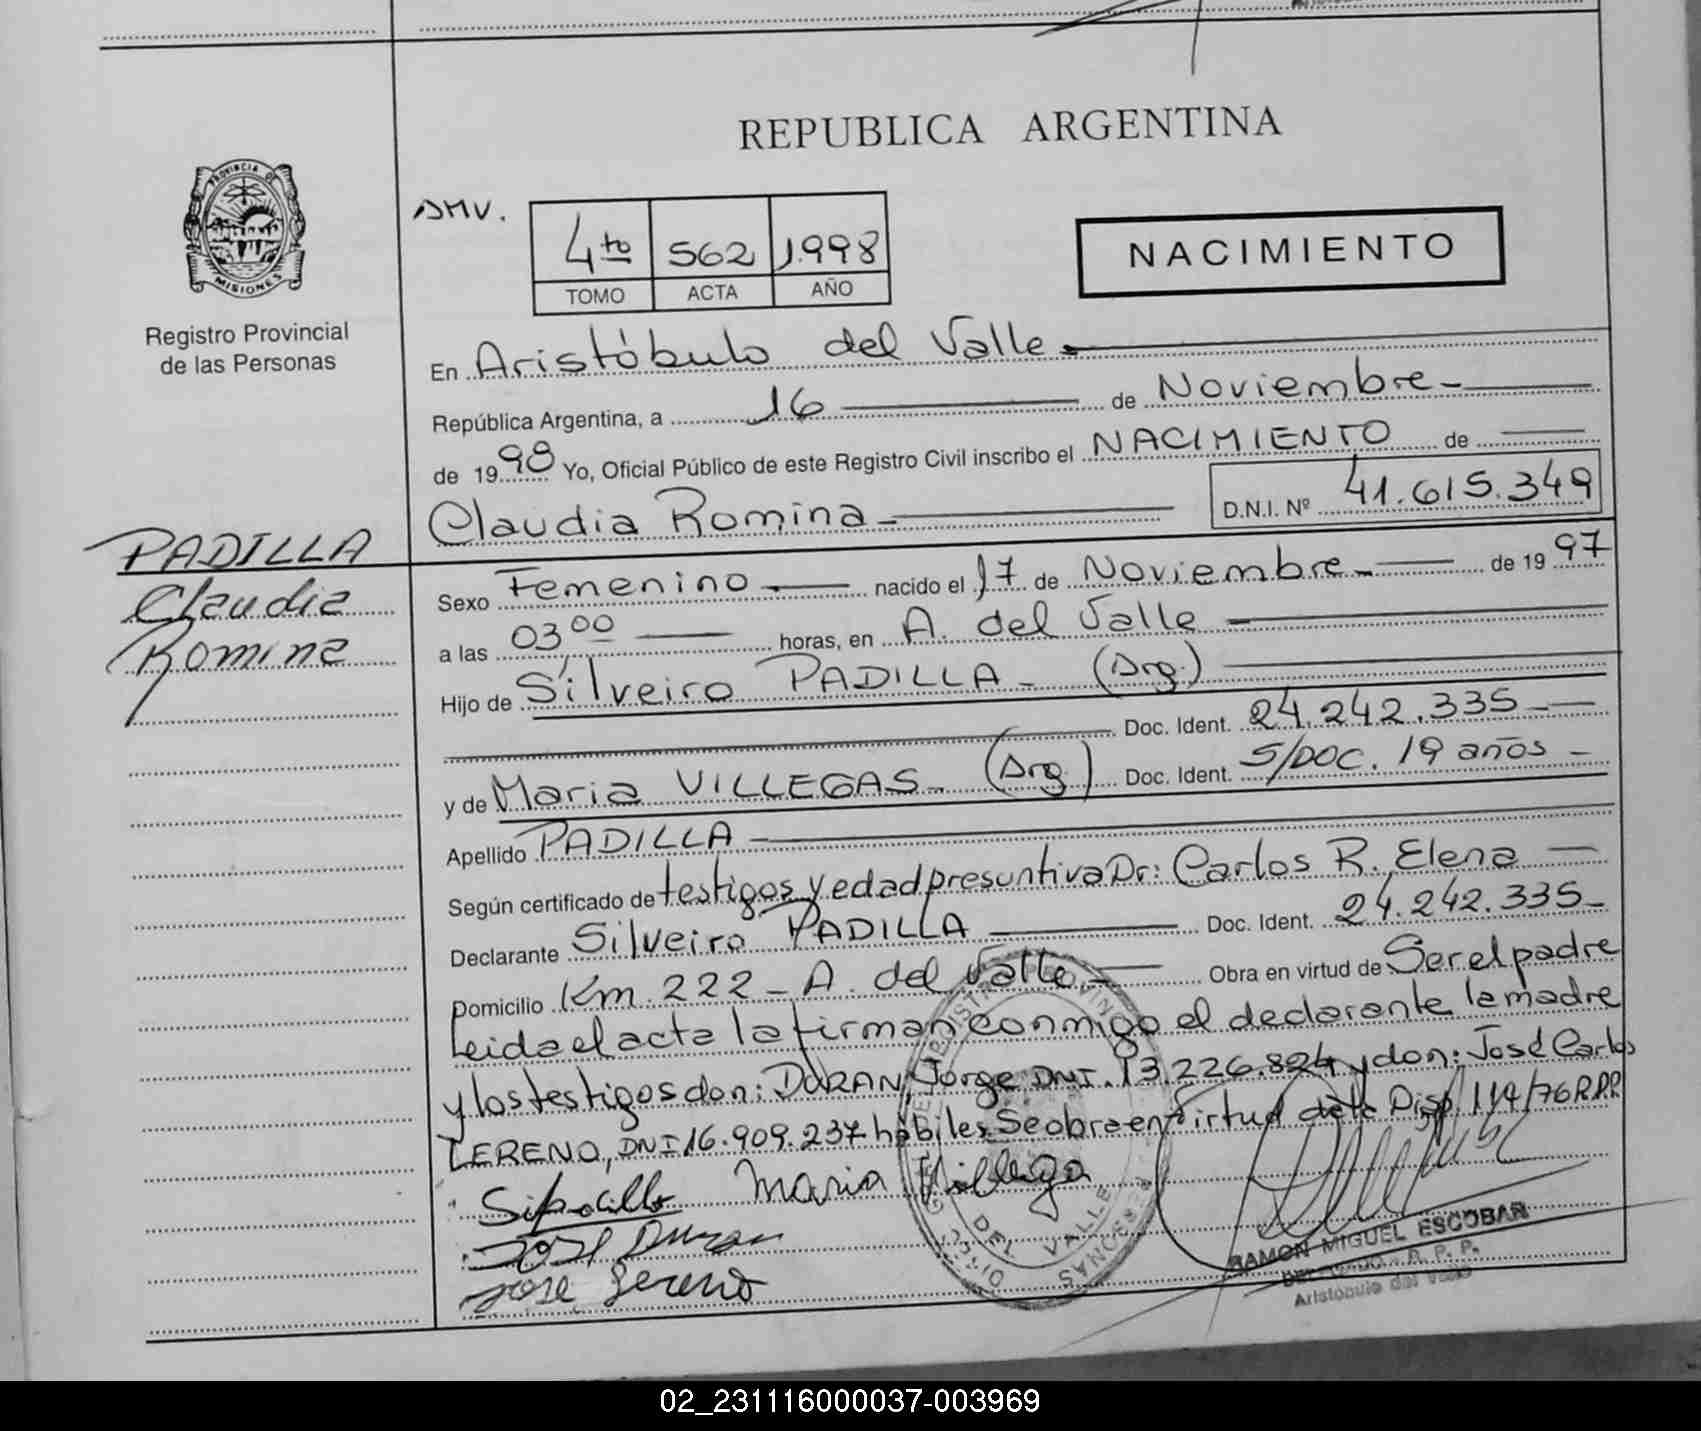 REPUBLICA ARGENTINA
PROVINCIA DE
MISIONES
Registro Provincial
de las Personas
4to 562 1.998
TOMO ACTA AÑO
NACIMIENTO
En Aristóbulo del Valle
República Argentina, a 16 de Noviembre
de 1998 Yo, Oficial Público de este Registro Civil inscribo el NACIMIENTO de
Claudia Romina D.N.I. Nº 41.615.349
PADILLA
Claudia
Romina
Sexo Femenino nacido el 17 de Noviembre de 1997
a las 03 00 horas, en A. del Valle
Hijo de Silveiro PADILLA (Arg.)
Doc. Ident. 24.242.335
y de Maria VILLEGAS (Arg) Doc. Ident. S/DOC. 19 años
Apellido PADILLA
Según certificado de testigos y edad presuntiva Dr: Carlos R. Elena
Declarante Silveiro PADILLA Doc. Ident. 24.242.335
Domicilio Km. 222 - A. del Valle Obra en virtud de Ser el padre
Leida el acta la firman conmigo el declarante la madre
y los testigos don: DURAN, Jorge DNI. 13.226.824 y don: José Carlos
LERENO, DNI 16.909.237 hábiles. Se obra en virtud de la Disp. 114/76 R.P.P.
Maria Villega
José Sereno
DEL VALLE
RAMON MIGUEL ESCOBAR
DELEGADO - R. P. P.
Aristóbulo del Valle
02_231116000037-003969